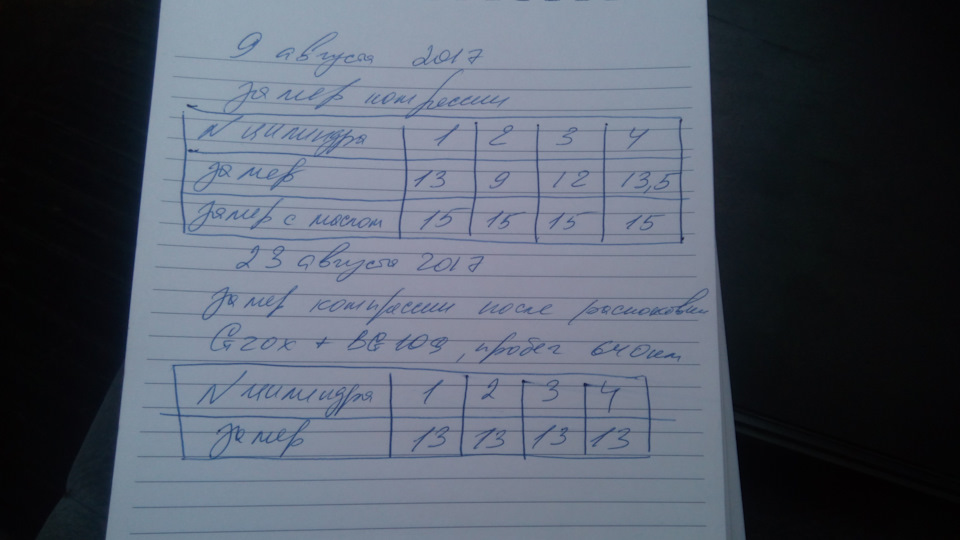 9 августа 2017
Замер компрессии
N цилиндра 1 2 3 4
Замер 13 9 12 13,5
Замер с маслом 15 15 15 15
23 августа 2017
Замер компрессии после раскоксовки
Gzox + BG109, пробег 640км
N цилиндра 1 2 3 4
Замер 13 13 13 13